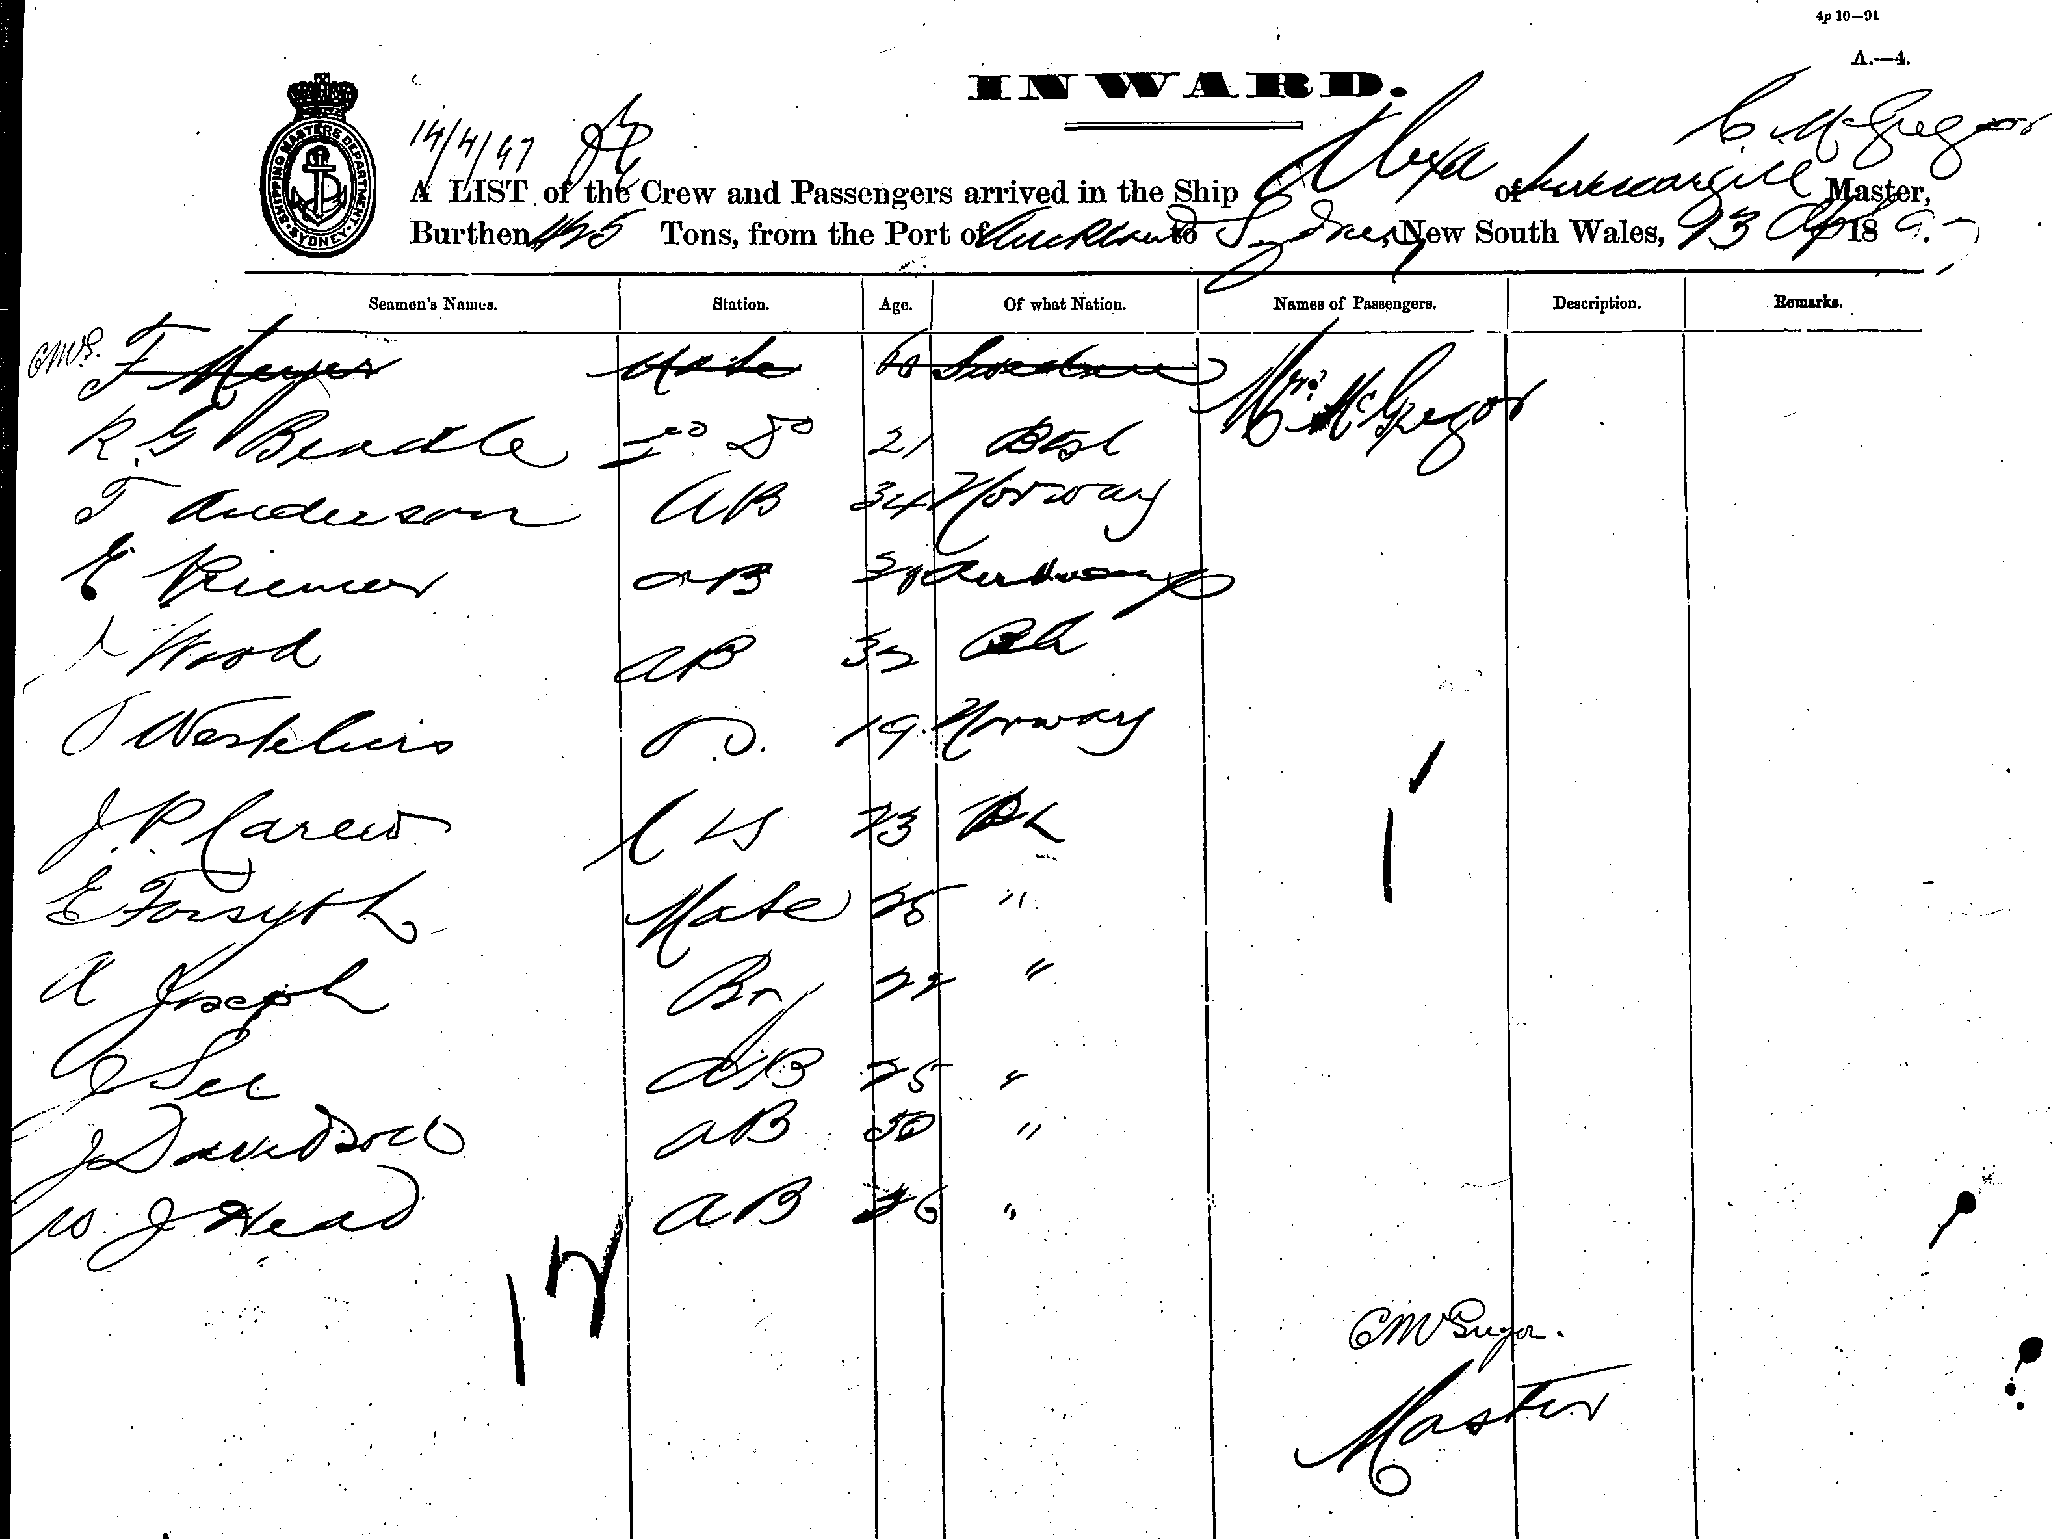 4p 10—91
A.—4.
INWARD.
SHIPPING MASTERS DEPARTMENT SYDNEY
14/4/97
C. McGregor
A LIST of the Crew and Passengers arrived in the Ship Alexa of Invercargill Master,
Burthen Tons, from the Port of Auckland to Sydney, New South Wales, 13 Apl 189
Seamen's Names. Station. Age. Of what Nation. Names of Passengers. Description. Remarks.
F Meyer Mate Sweden Mrs McGregor
R. G Beadle Do 21 Btsh
T Anderson AB 34 Norway
E AB
Wood AB 32
OS. 19 Norway
J. P. Carew 23
E Forsyth Mate 25 "
A Joseph Boy 22 "
J See AB 25 "
J Davidson AB 50 "
W. J Head AB 26 "
12
C McGregor.
Master